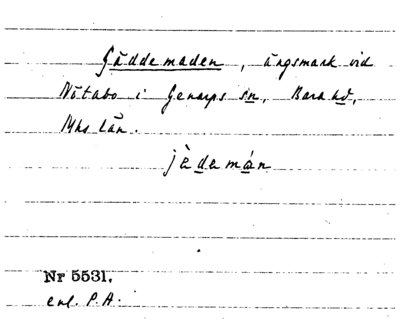 Gäddemaden, ängsmark vid
Nötabo i Genarps sn, Bara hd,
Mhs län.
jèdemán
Nr 5531.
enl. P.A.